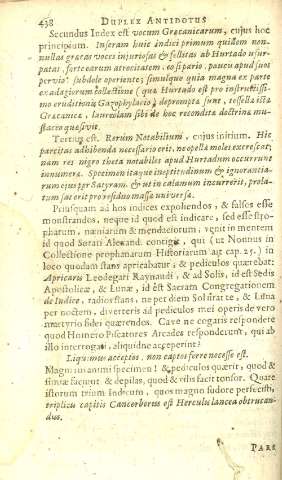 438 DUPLEX ANTIDOTUS
Secundus Index est vocum Græcanicarum, cujus hoc
principium. Inseram huic indici primum quidem non-
nullas græcas voces injuriosas & festivas ab Hurtado usur-
patas, forte earum atrocitatem, eo sipario, paucu apud suos
pervio subdole operiente; simulque quia magna ex parte
ex adagiorum collectione (quæ Hurtado est pro instructissi-
mo eruditionis Gazophylacio) depromptæ sunt, tessella ista
Græcanica, laureolam sibi de hoc recondita doctrina mu-
staceo quæsivit.
Tertius est, Rerum Notabilium, cujus initium. Hic
parcitas adhibenda necessario erit, ne opella moles excrescat;
nam res nigro theta notabiles apud Hurtadum occurrunt
innumeræ. Specimen itaque ineptitudinum & ignorantia-
rum ejus per Satyram, & ut in calamum incurrerit, prola-
tum sat erit pro residuo massa universa.
Priusquam ad hos indices expoliendos, & falsos esse
monstrandos, neque id quod est indicare, sed esse stro-
phatum, næniarum & mendaciorum, venit in mentem
id quod Sotati Alexand. contigit, qui (ut Nonnus in
Collectione prophanarum Historiarum ait cap. 25.) in
loco quodam stans apricabatur, & pediculos quærebat:
Apricaris Leodegari Raynaudi, & ad Solis, id est Sedis
Apostolicæ, & Lunæ, id est Sacram Congregationem
de Indice, radios stans, ne per diem Sol irate, & Luna
per noctem, diverteris ad pediculos mei operis de vero
martyrio fidei quærendos. Cave ne cogaris respondere
quod Homero Piscatores Arcades responderunt, qui ab
illo interrogati, aliquidne acceperint?
Liquimus acceptos, non captos ferre necesse est.
Magni sui animi specimen! & pediculos quærit, quod &
simiæ faciunt & depilas, quod & vilis facit tonsor. Quare
istorum trium indicum, quos magno sudore perfecisti,
triplicis capitis Cancorberos est Herculis lancea obtruncan-
dus.
PARS